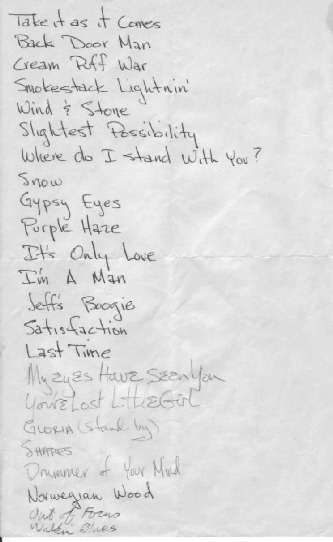 Take it as it Comes
Back Door Man
Cream Puff War
Smokestack Lightnin'
Wind & Stone
Slightest Possibility
Where do I stand With You?
Snow
Gypsy Eyes
Purple Haze
It's Only Love
I'm A Man
Jeff's Boogie
Satisfaction
Last Time
My Eyes Have Seen You
You're Lost Little Girl
GLORIA (stand by)
SHAPES
Drummer of Your Mind
Norwegian Wood
Out of Focus
Walkin Blues